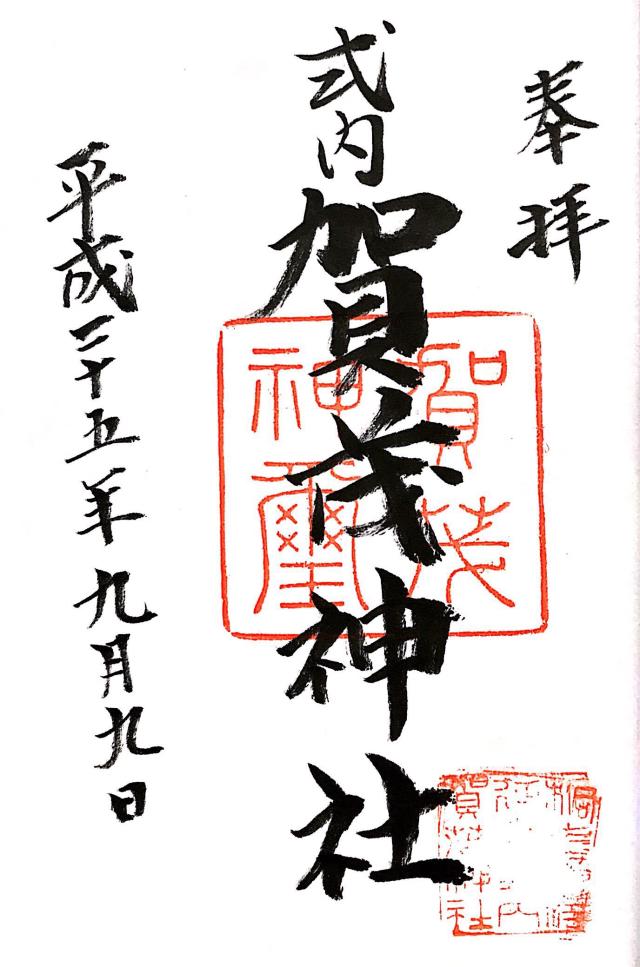 奉拝
式内
賀茂神社
平成二十五年九月九日
賀茂
神璽
賀茂神社